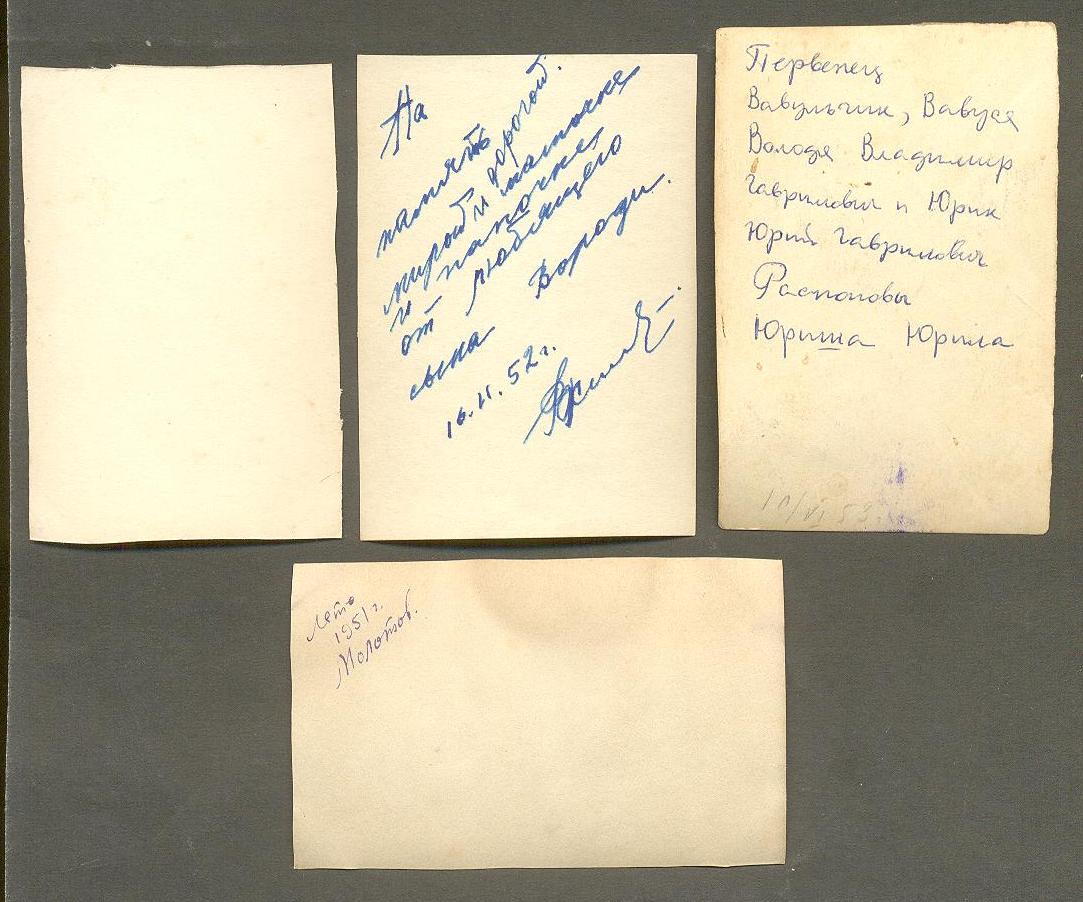 На
память
милой и дорогой.
мамочке
и папочке,
от любящего
сына Вороди.
16.II.52 г.
Первенец
Вавульчик, Вавуся
Володя Владимир
Гаврилович и Юрик
Юрий Гаврилович
Распоповы
Юриша Юрила
10/VI 53
Лето
1951 г.
Молотов.